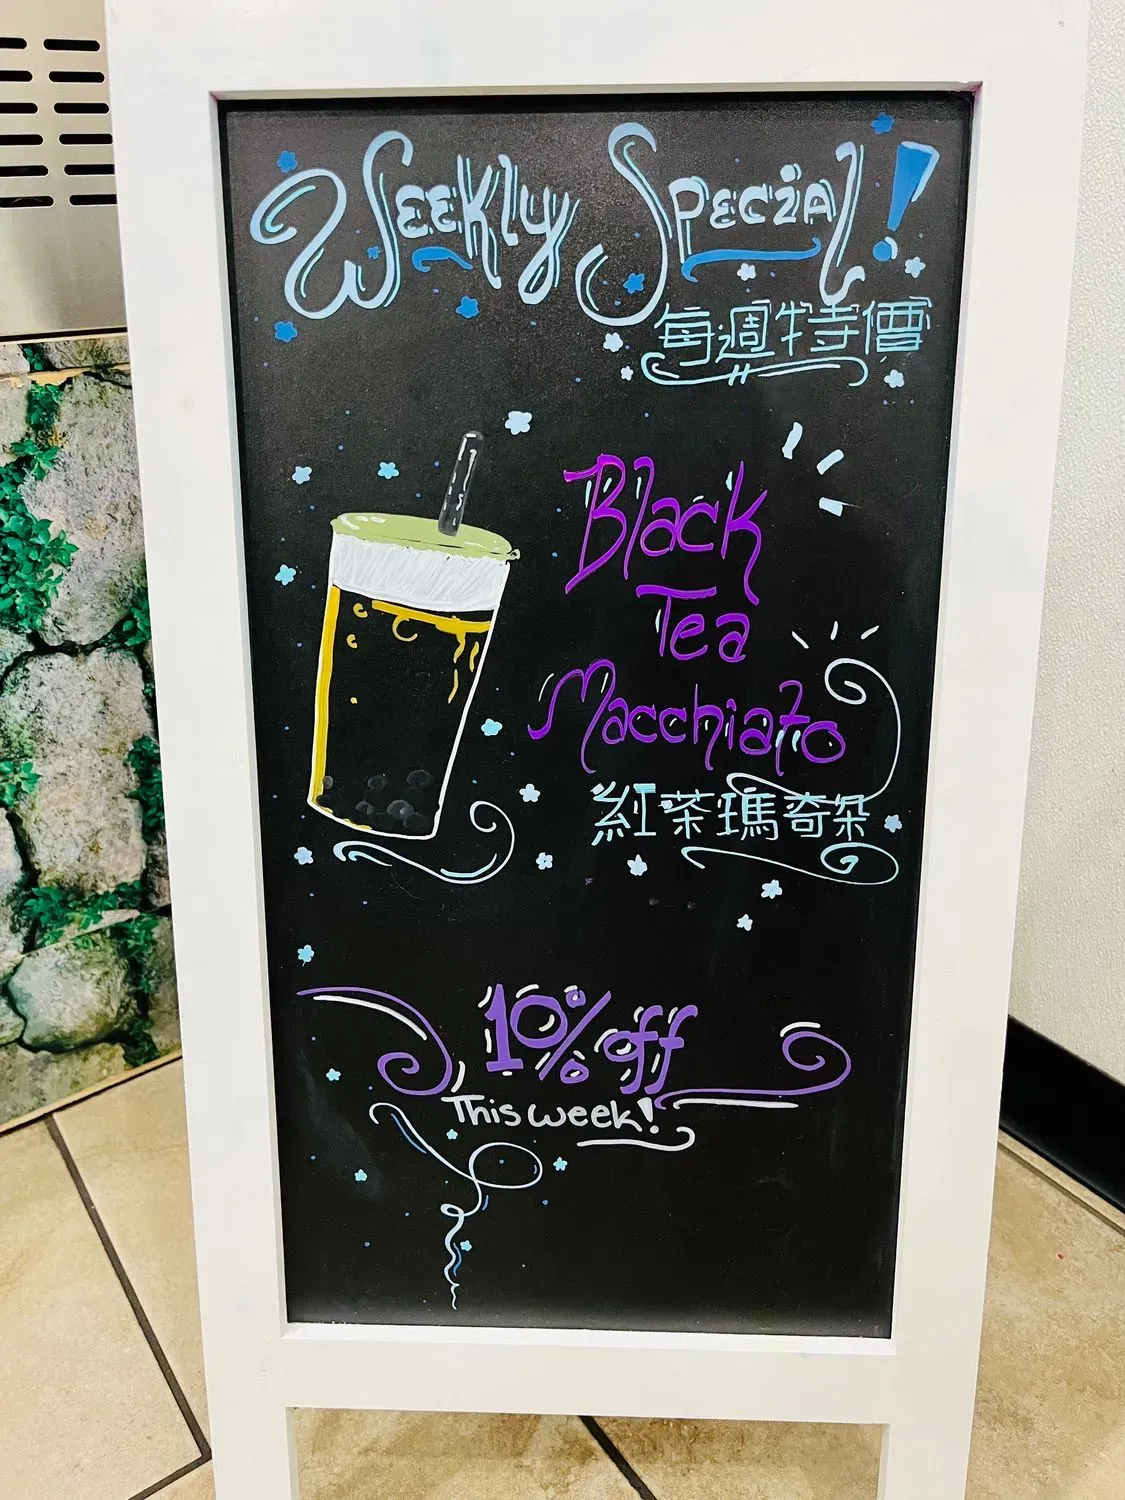 Weekly Special!
每週特價
Black
Tea
Macchiato
紅茶瑪奇朵
10% off
This week!